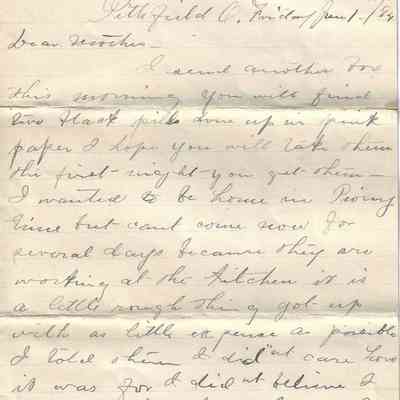 Pittsfield O. Friday Jan 1 - / 84
Dear Mother -
I send another box
this morning you will find
two Flack pills done up in pink
paper I hope you will take them
the first night you get them -
I wanted to be home in
time but cant come now for
several days because they are
working at the kitchen it is
a little rough thing got up
with as little expense as possible
I told them I did"nt care how
it was for I did nt believe I